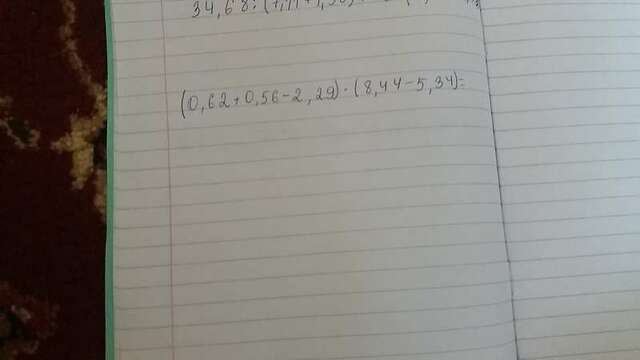 34,68:
(0,62+0,56-2,29)·(8,44-5,34)=